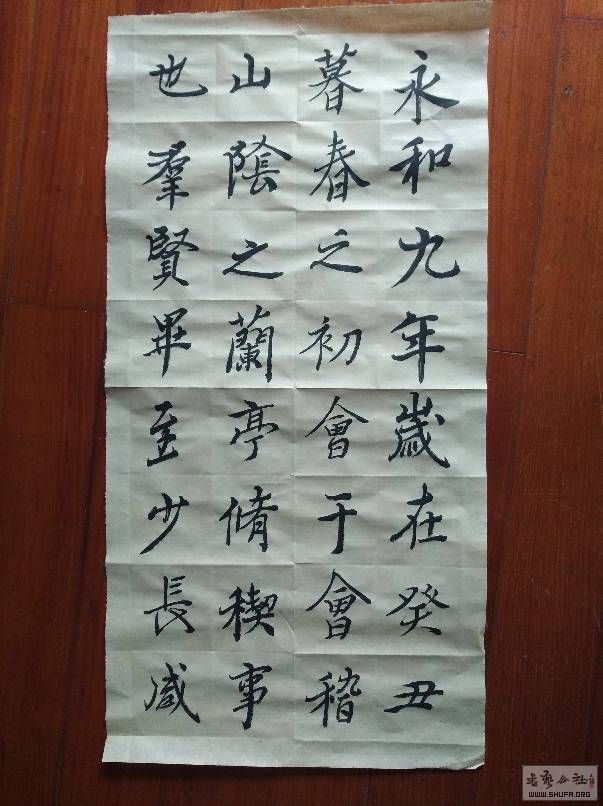 永和九年歲在癸丑
暮春之初會于會稽
山陰之蘭亭脩稧事
也羣賢畢至少長咸
书艺公社
WWW.SHUFA.ORG